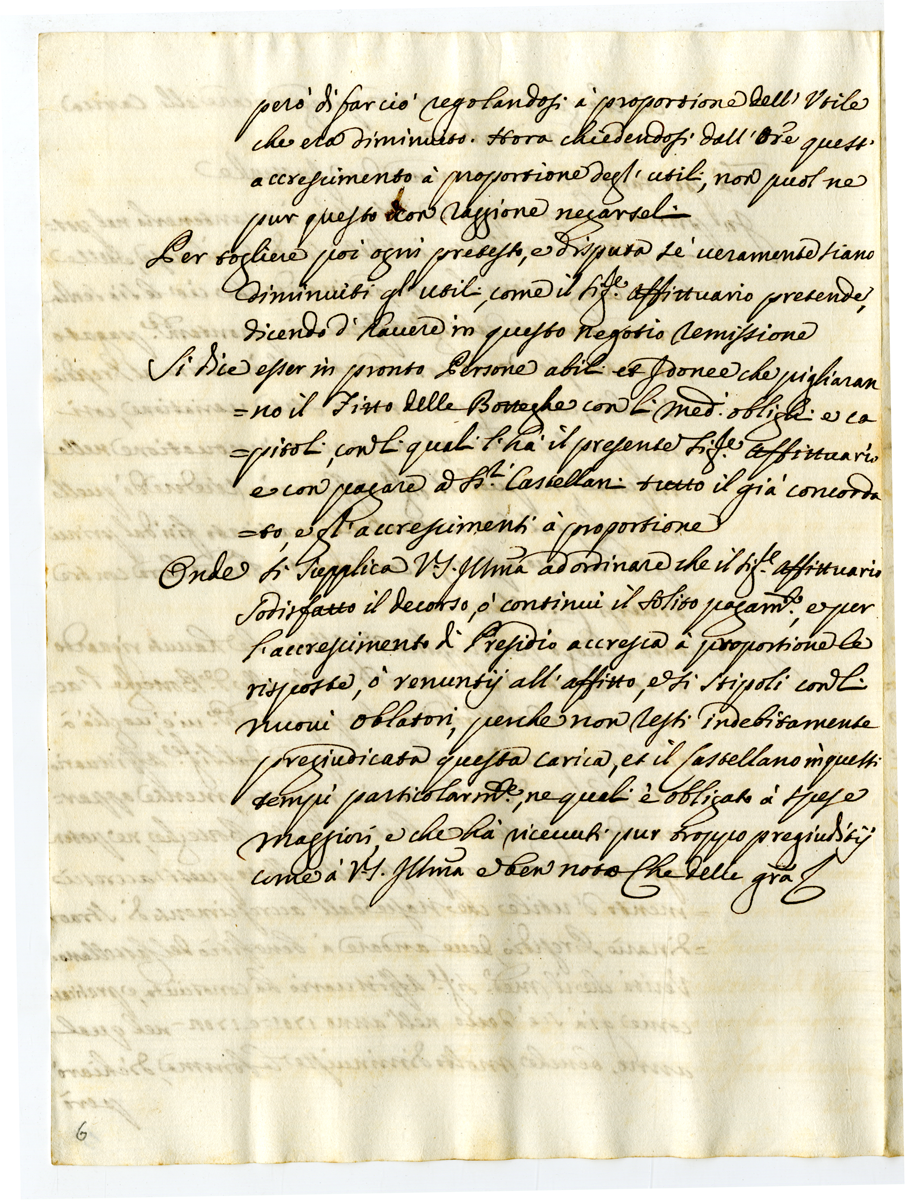 però di farciò regolandosi à proportione dell' Utile
che era diminuito. Hora chiedendosi dall' Ore quest'
accrescimento à proportione degl' utili, non puol ne
pur questo con raggione negarseli
Per togliere poi ogni pretesto, e disputa se veramente siano
diminuiti gl' utili, come il Sigre. Affittuario pretende,
dicendo d' havere in questo negotio remissione
Si dice esser in pronto Persone abili et Idonee che pigliaran
=no il Fitto delle Botteghe con li medi. oblighi e ca
=pitoli, con li quali l' hà il presente Sigre. Affittuario
e con pagare al Sr. Castellani tutto il già concorda
=to, e gl' accrescimenti à proportione
Onde si supplica V.S. Illma ad ordinare che il Sigre. Affittuario
sodisfatto il decorso, ò continui il solito pagamto., e per
l' accrescimento di Presidio accresca à proportione le
risposte, ò renuntij all' affitto, e si stipoli con li
nuovi oblatori, perche non resti indebitamente
pregiudicata questa carica, et il Castellano in questi
tempi particolarmte., ne quali è obligato à spese
maggiori, e che hà ricevuti pur troppo pregiuditij
come à V.S. Illma e ben noto Che delle grã
6